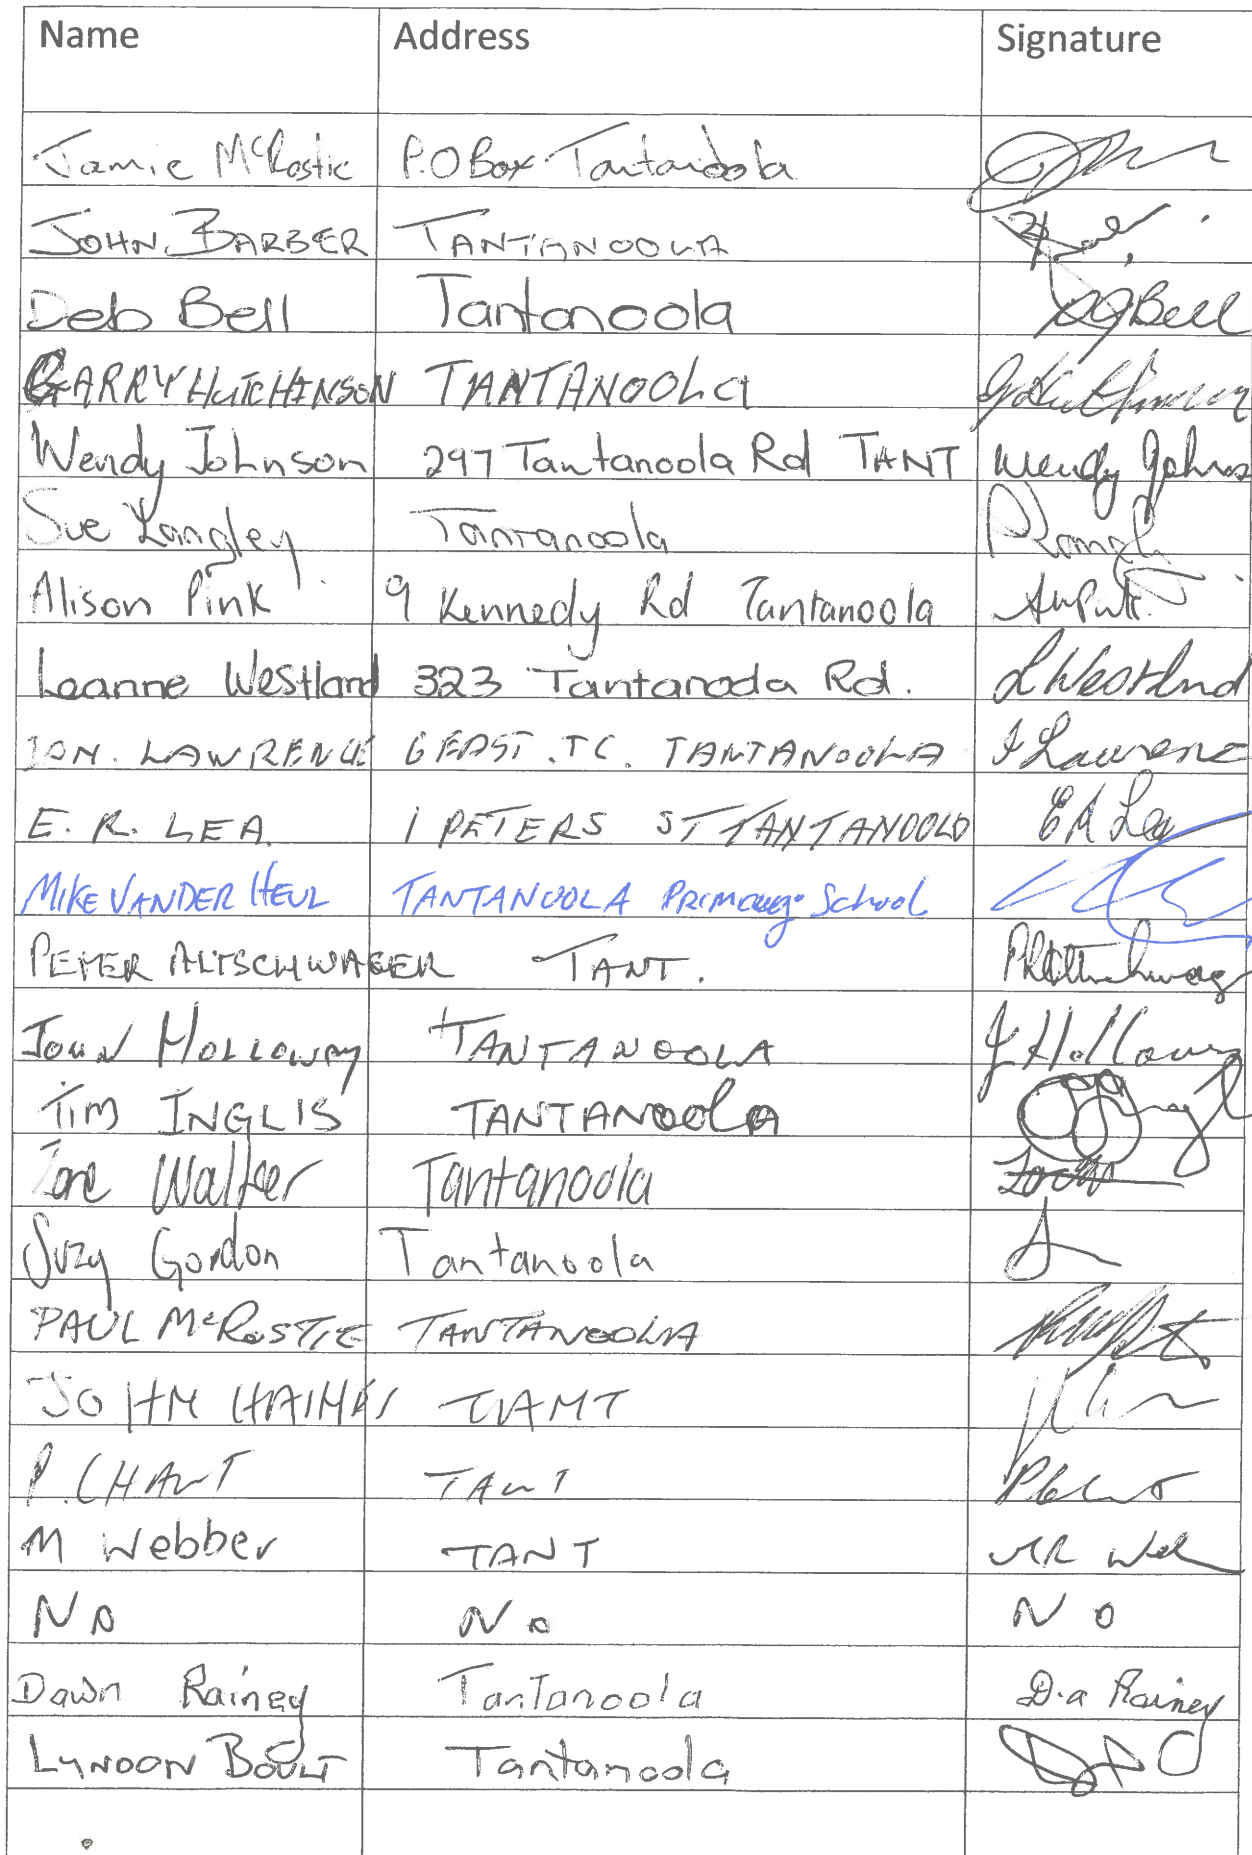 Name Address Signature
Jamie McRostie P.O Box Tantanoola
JOHN. BARBER TANTANOOLA
Deb Bell Tantanoola DJBell
GARRY HUTCHINSON TANTANOOLA GHutchinson
Wendy Johnson 297 Tantanoola Rd TANT Wendy Johns
Sue Langley Tantanoola
Alison Pink 9 Kennedy Rd Tantanoola
Leanne Westland 323 Tantanoola Rd. L Westlnd
ION. LAWRENCE 6 EAST. TC. TANTANOOLA I Lawrence
E. R. LEA. 1 PETERS ST TANTANOOLA E R Lea
MIKE VANDER HEUL TANTANOOLA PRIMARY School
PETER ALTSCHWAGER TANT.
JOHN HOLLOWAY TANTANOOLA J Holloway
TIM INGLIS TANTANOOLA
Zoe Walker Tantanoola
Suzy Gordon Tantanoola
PAUL McROSTIE TANTANOOLA
JOHN HAINES TANT
P. CHANT TANT
M Webber TANT MR Web
NO NO NO
Dawn Rainey Tantanoola D.a Rainey
LYNDON BOULT Tantanoola